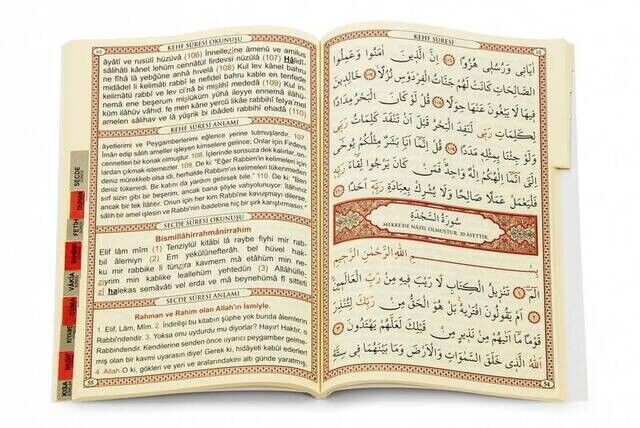 KEHF SÛRESİ OKUNUŞU
âyâtî ve rusulî hüzüvâ (106) İnnellezîne âmenû ve amilus
sâlihâti kânet lehüm cennâtül firdevsi nüzülâ (107) Hâlidî-
ne fîhâ lâ yebğûne anhâ hıvelâ (108) Kul lev kânel bahru
midâdel li kelimâti rabbî le nefidel bahru kable en tenfede
kelimâtü rabbî ve lev ci'nâ bi mislihî mededâ (109) Kul in-
nemâ ene beşerum mislüküm yûhâ ileyye ennemâ ilâhü-
küm ilâhüv vâhid, fe men kâne yercû likâe rabbihî felya'mel
amelen sâlihav ve lâ yüşrik bi ibâdeti rabbihî ehadâ (110)
KEHF SÛRESİ ANLAMI
âyetlerimi ve Peygamberlerimi eğlence yerine tutmuşlardır. 107
İman edip sâlih ameller işleyen kimselere gelince; Onlar için Firdevs
cennetleri bir konak olmuştur. 108. İçlerinde sonsuza dek kalırlar, on-
dan çıkmak istemezler. 109. De ki: "Eğer Rabbim'in kelimeleri için
deniz mürekkeb olsa idi, herhalde Rabbim'in kelimeleri tükenmeden
deniz tükenirdi. Bir katını da yardım getirsek bile." 110. De ki: "Ben
sırf sizin gibi bir beşerim, ancak bana şöyle vahyolunuyor: İlâhınız
ancak bir tek İlâhtır. Onun için her kim Rabbi'ne kavuşmayı dilerse,
sâlih bir amel işlesin ve Rabbi'nin ibadetine hiç bir şirk karıştırmasın."
SECDE SÛRESİ OKUNUŞU
Bismillâhirrahmânirrahîm
Elif lâm mîm (1) Tenzîylül kitâbi lâ raybe fîyhi mir rab-
bil âlemiyn (2) Em yekûlûnefterâh, bel hüvel hak-
ku mir rabbike li tünzira kavmem mâ etâhüm min ne-
ziyrim min kablike leallehüm yehtedûn (3) Allâhülle-
zî halekas semâvâti vel erda ve mâ beynehümâ fî sitteti
SECDE SÛRESİ ANLAMI
Rahman ve Rahim olan Allah'ın İsmiyle.
1. Elif, Lâm, Mîm. 2. İndirilişi bu kitabın şüphe yok bunda âlemlerin
Rabbi'ndendir. 3. Yoksa onu uydurdu mu diyorlar? Hayır! Haktır, o
Rabbi'ndendir. Kendilerine senden önce uyarıcı peygamber gelme-
miş olan bir kavmi uyarasın diye! Gerek ki, hidâyeti kabûl ederler!
4. Allah O ki, gökleri ve yeri ve aralarındakini altı günde yaratmış,
SECDE
DUHAN
FETİH
VÂKIA
KEHF SÛRESİ
اٰيَاتٖى وَرُسُلٖى هُزُوًا ﴿١٠٦﴾ اِنَّ الَّذٖينَ اٰمَنُوا وَعَمِلُوا
الصَّالِحَاتِ كَانَتْ لَهُمْ جَنَّاتُ الْفِرْدَوْسِ نُزُلًا ﴿١٠٧﴾ خَالِدٖينَ
فٖيهَا لَا يَبْغُونَ عَنْهَا حِوَلًا ﴿١٠٨﴾ قُلْ لَوْ كَانَ الْبَحْرُ مِدَادًا
لِكَلِمَاتِ رَبّٖى لَنَفِدَ الْبَحْرُ قَبْلَ اَنْ تَنْفَدَ كَلِمَاتُ رَبّٖى
وَلَوْ جِئْنَا بِمِثْلِهٖ مَدَدًا ﴿١٠٩﴾ قُلْ اِنَّمَا اَنَا بَشَرٌ مِثْلُكُمْ يُوحٰٓى
اِلَىَّ اَنَّمَا اِلٰهُكُمْ اِلٰهٌ وَاحِدٌ فَمَنْ كَانَ يَرْجُوا لِقَٓاءَ رَبِّهٖ
فَلْيَعْمَلْ عَمَلًا صَالِحًا وَلَا يُشْرِكْ بِعِبَادَةِ رَبِّهٖ اَحَدًا ﴿١١٠﴾
سُورَةُ السَّجْدَةِ
MEKKE'DE NÂZİL OLMUŞTUR. 30 ÂYETTİR.
بِسْمِ اللهِ الرَّحْمٰنِ الرَّحٖيمِ
الٓمٓ ﴿١﴾ تَنْزٖيلُ الْكِتَابِ لَا رَيْبَ فٖيهِ مِنْ رَبِّ الْعَالَمٖينَ
﴿٢﴾ اَمْ يَقُولُونَ افْتَرٰيهُ بَلْ هُوَ الْحَقُّ مِنْ رَبِّكَ لِتُنْذِرَ
قَوْمًا مَٓا اَتٰيهُمْ مِنْ نَذٖيرٍ مِنْ قَبْلِكَ لَعَلَّهُمْ يَهْتَدُونَ ﴿٣﴾
اَللهُ الَّذٖى خَلَقَ السَّمٰوَاتِ وَالْاَرْضَ وَمَا بَيْنَهُمَا فٖى سِتَّةِ